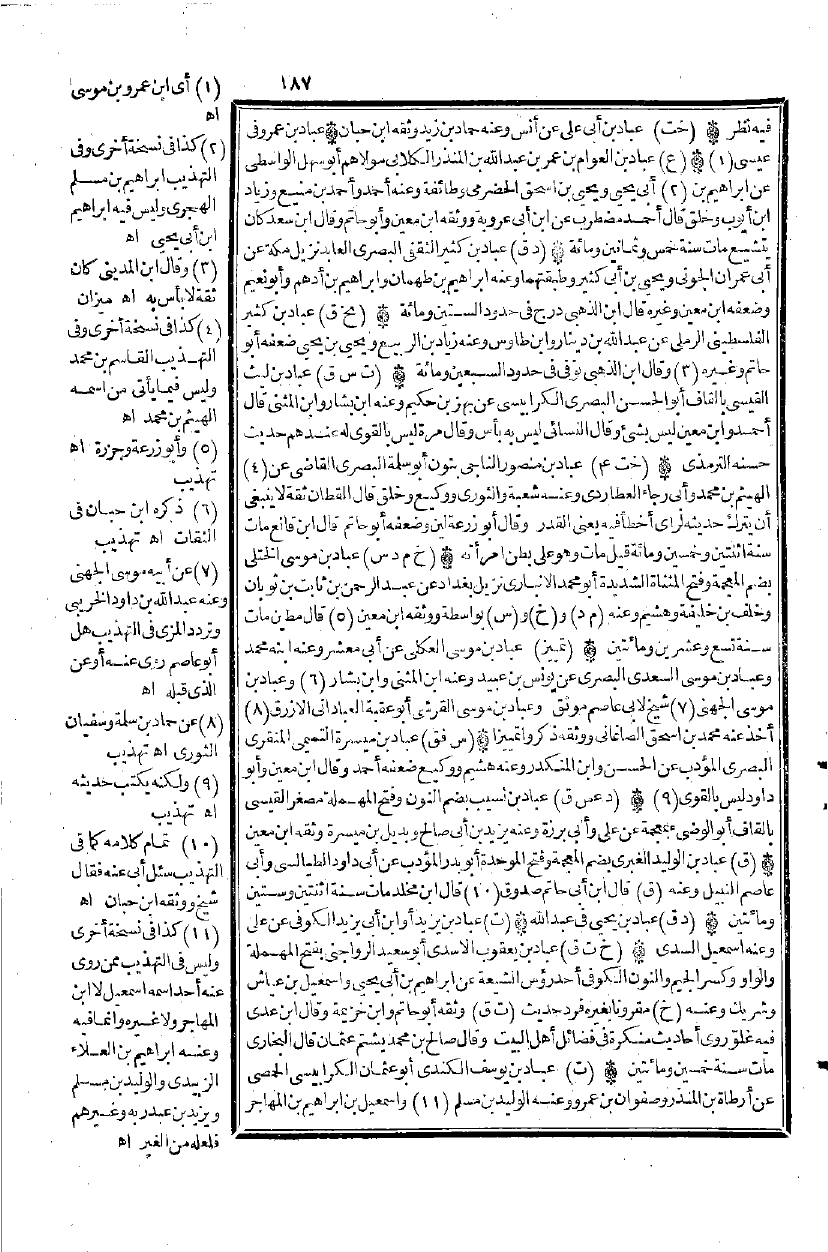 ١٨٧
فيه نظر ۞ (خت) عباد بن أبي على عن أنس وعنه حماد بن زيد وثقه ابن حبان ۞ عباد بن عمرو فى
عيسى (١) ۞ (ع) عباد بن العوام بن عمر بن عبدالله بن المنذر الكلابى مولاهم أبو سهل الواسطى
عن ابراهيم بن (٢) أبى يحيى ويحيى بن اسحق الحضرمى وطائفة وعنه أحمد وأحمد بن منيع وزياد
ابن أيوب وخلق قال أحمد مضطرب عن ابن أبى عروبة ووثقه ابن معين وأبو حاتم وقال ابن سعد كان
يتشيع مات سنة خمس وثمانين ومائة ۞ (د ق) عباد بن كثير الثقفى البصرى العابد نزيل مكة عن
أبى عمران الجونى ويحيى بن أبى كثير وطبقتهما وعنه ابراهيم بن طهمان وابراهيم بن أدهم وأبو نعيم
وضعفه ابن معين وغيره قال ابن الذهبى درج فى حدود الستين ومائة ۞ (بخ ق) عباد بن كثير
الفلسطينى الرملى عن عبدالله بن دينار وابن طاوس وعنه زياد بن الربيع ويحيى بن يحيى ضعفه أبو
حاتم وغيره (٣) وقال ابن الذهبى توفى فى حدود السبعين ومائة ۞ (ت س ق) عباد بن ليث
القيسى بالقاف أبو الحسن البصرى الكرابيسى عن بهز بن حكيم وعنه ابن بشار وابن المثنى قال
أحمد وابن معين ليس بشئ وقال النسائى ليس به بأس وقال مرة ليس بالقوى له عندهم حديث
حسنه الترمذى ۞ (خت ٤) عباد بن منصور الناجى بنون أبو سلمة البصرى القاضى عن (٤)
الهيثم بن محمد وأبى رجاء العطاردى وعنه شعبة والثورى ووكيع وخلق قال القطان ثقة لا ينبغى
أن يترك حديثه لراى أخطأ فيه يعنى القدر وقال أبو زرعة لين وضعفه أبو حاتم قال ابن قانع مات
سنة اثنتين وخمسين ومائة قيل مات وهو على بطن امرأته ۞ (خ م د س) عباد بن موسى الختلى
بضم المعجمة وفتح المثناة الشديدة أبو محمد الانبارى نزيل بغداد عن عبد الرحمن بن ثابت بن ثوبان
وخلف بن خليفة وهشيم وعنه (م د) و(خ) و(س) بواسطة ووثقه ابن معين (٥) قال مطين مات
سنة تسع وعشرين ومائتين ۞ (تمييز) عباد بن موسى العكلى عن أبى معشر وعنه ابنه محمد
وعباد بن موسى السعدى البصرى عن يونس بن عبيد وعنه ابن المثنى وابن بشار (٦) وعباد بن
موسى الجهنى (٧) شيخ لابى عاصم موثق وعباد بن موسى القرشى أبو عقبة العبادانى الازرق (٨)
أخذ عنه محمد بن اسحق الصاغانى ووثقه ذكروا تمييزا ۞ (س فق) عباد بن ميسرة التميمى المنقرى
البصرى المؤدب عن الحسن وابن المنكدر وعنه هشيم ووكيع ضعفه أحمد وقال ابن معين وأبو
داود ليس بالقوى (٩) ۞ (د عس ق) عباد بن نسيب بضم النون وفتح المهملة مصغر القيسى
بالقاف أبو الوضئ بمعجمة عن على وأبى برزة وعنه يزيد بن أبى صالح وبديل بن ميسرة وثقه ابن معين
۞ (ق) عباد بن الوليد الغبرى بضم المعجمة وفتح الموحدة أبو بدر المؤدب عن أبى داود الطيالسى وأبى
عاصم النبيل وعنه (ق) قال ابن أبى حاتم صدوق (١٠) قال ابن مخلد مات سنة اثنتين وستين
ومائتين ۞ (د ق) عباد بن يحيى فى عبدالله ۞ (ت) عباد بن يزيد أو ابن أبى يزيد الكوفى عن على
وعنه اسمعيل السدى ۞ (خ ت ق) عباد بن يعقوب الاسدى أبو سعيد الرواجنى بفتح المهملة
والواو وكسر الجيم والنون الكوفى أحد رؤس الشيعة عن ابراهيم بن أبى يحيى واسمعيل بن عياش
وشريك وعنه (خ) مقرونا بغيره فرد حديث (ت ق) وثقه أبو حاتم وابن خزيمة وقال ابن عدى
فيه غلو روى أحاديث منكرة فى فضائل أهل البيت وقال صالح بن محمد يشتم عثمان قال البخارى
مات سنة خمسين ومائتين ۞ (ت) عباد بن يوسف الكندى أبو عثمان الكرابيسى الحمصى
عن أرطاة بن المنذر وصفوان بن عمرو وعنه الوليد بن مسلم (١١) واسمعيل بن ابراهيم بن المهاجر
(١) أى ابن عمرو بن موسى
اه
(٢) كذا فى نسخة أخرى وفى
التهذيب ابراهيم بن مسلم
الهجرى وليس فيه ابراهيم
ابن أبى يحيى اه
(٣) وقال ابن المدينى كان
ثقة لا بأس به اه ميزان
(٤) كذا فى نسخة أخرى وفى
التهذيب القاسم بن محمد
وليس فيما يأتى من اسمه
الهيثم بن محمد اه
(٥) وأبو زرعة وجزرة اه
تهذيب
(٦) ذكره ابن حبان فى
الثقات اه تهذيب
(٧) عن أبيه موسى الجهنى
وعنه عبدالله بن داود الخريبى
وتردد المزى فى التهذيب هل
أبو عاصم روى عنه أو عن
الذى قبله اه
(٨) عن حماد بن سلمة وسفيان
الثورى اه تهذيب
(٩) ولكنه يكتب حديثه
اه تهذيب
(١٠) تمام كلامه كما فى
التهذيب سئل أبى عنه فقال
شيخ ووثقه ابن حبان اه
(١١) كذا فى نسخة أخرى
وليس فى التهذيب ممن روى
عنه أحد اسمه اسمعيل لا ابن
المهاجر ولا غيره وانما فيه
وعنه ابراهيم بن العلاء
الزبيدى والوليد بن مسلم
ويزيد بن عبدربه وغيرهم
فلعله من الغير اه